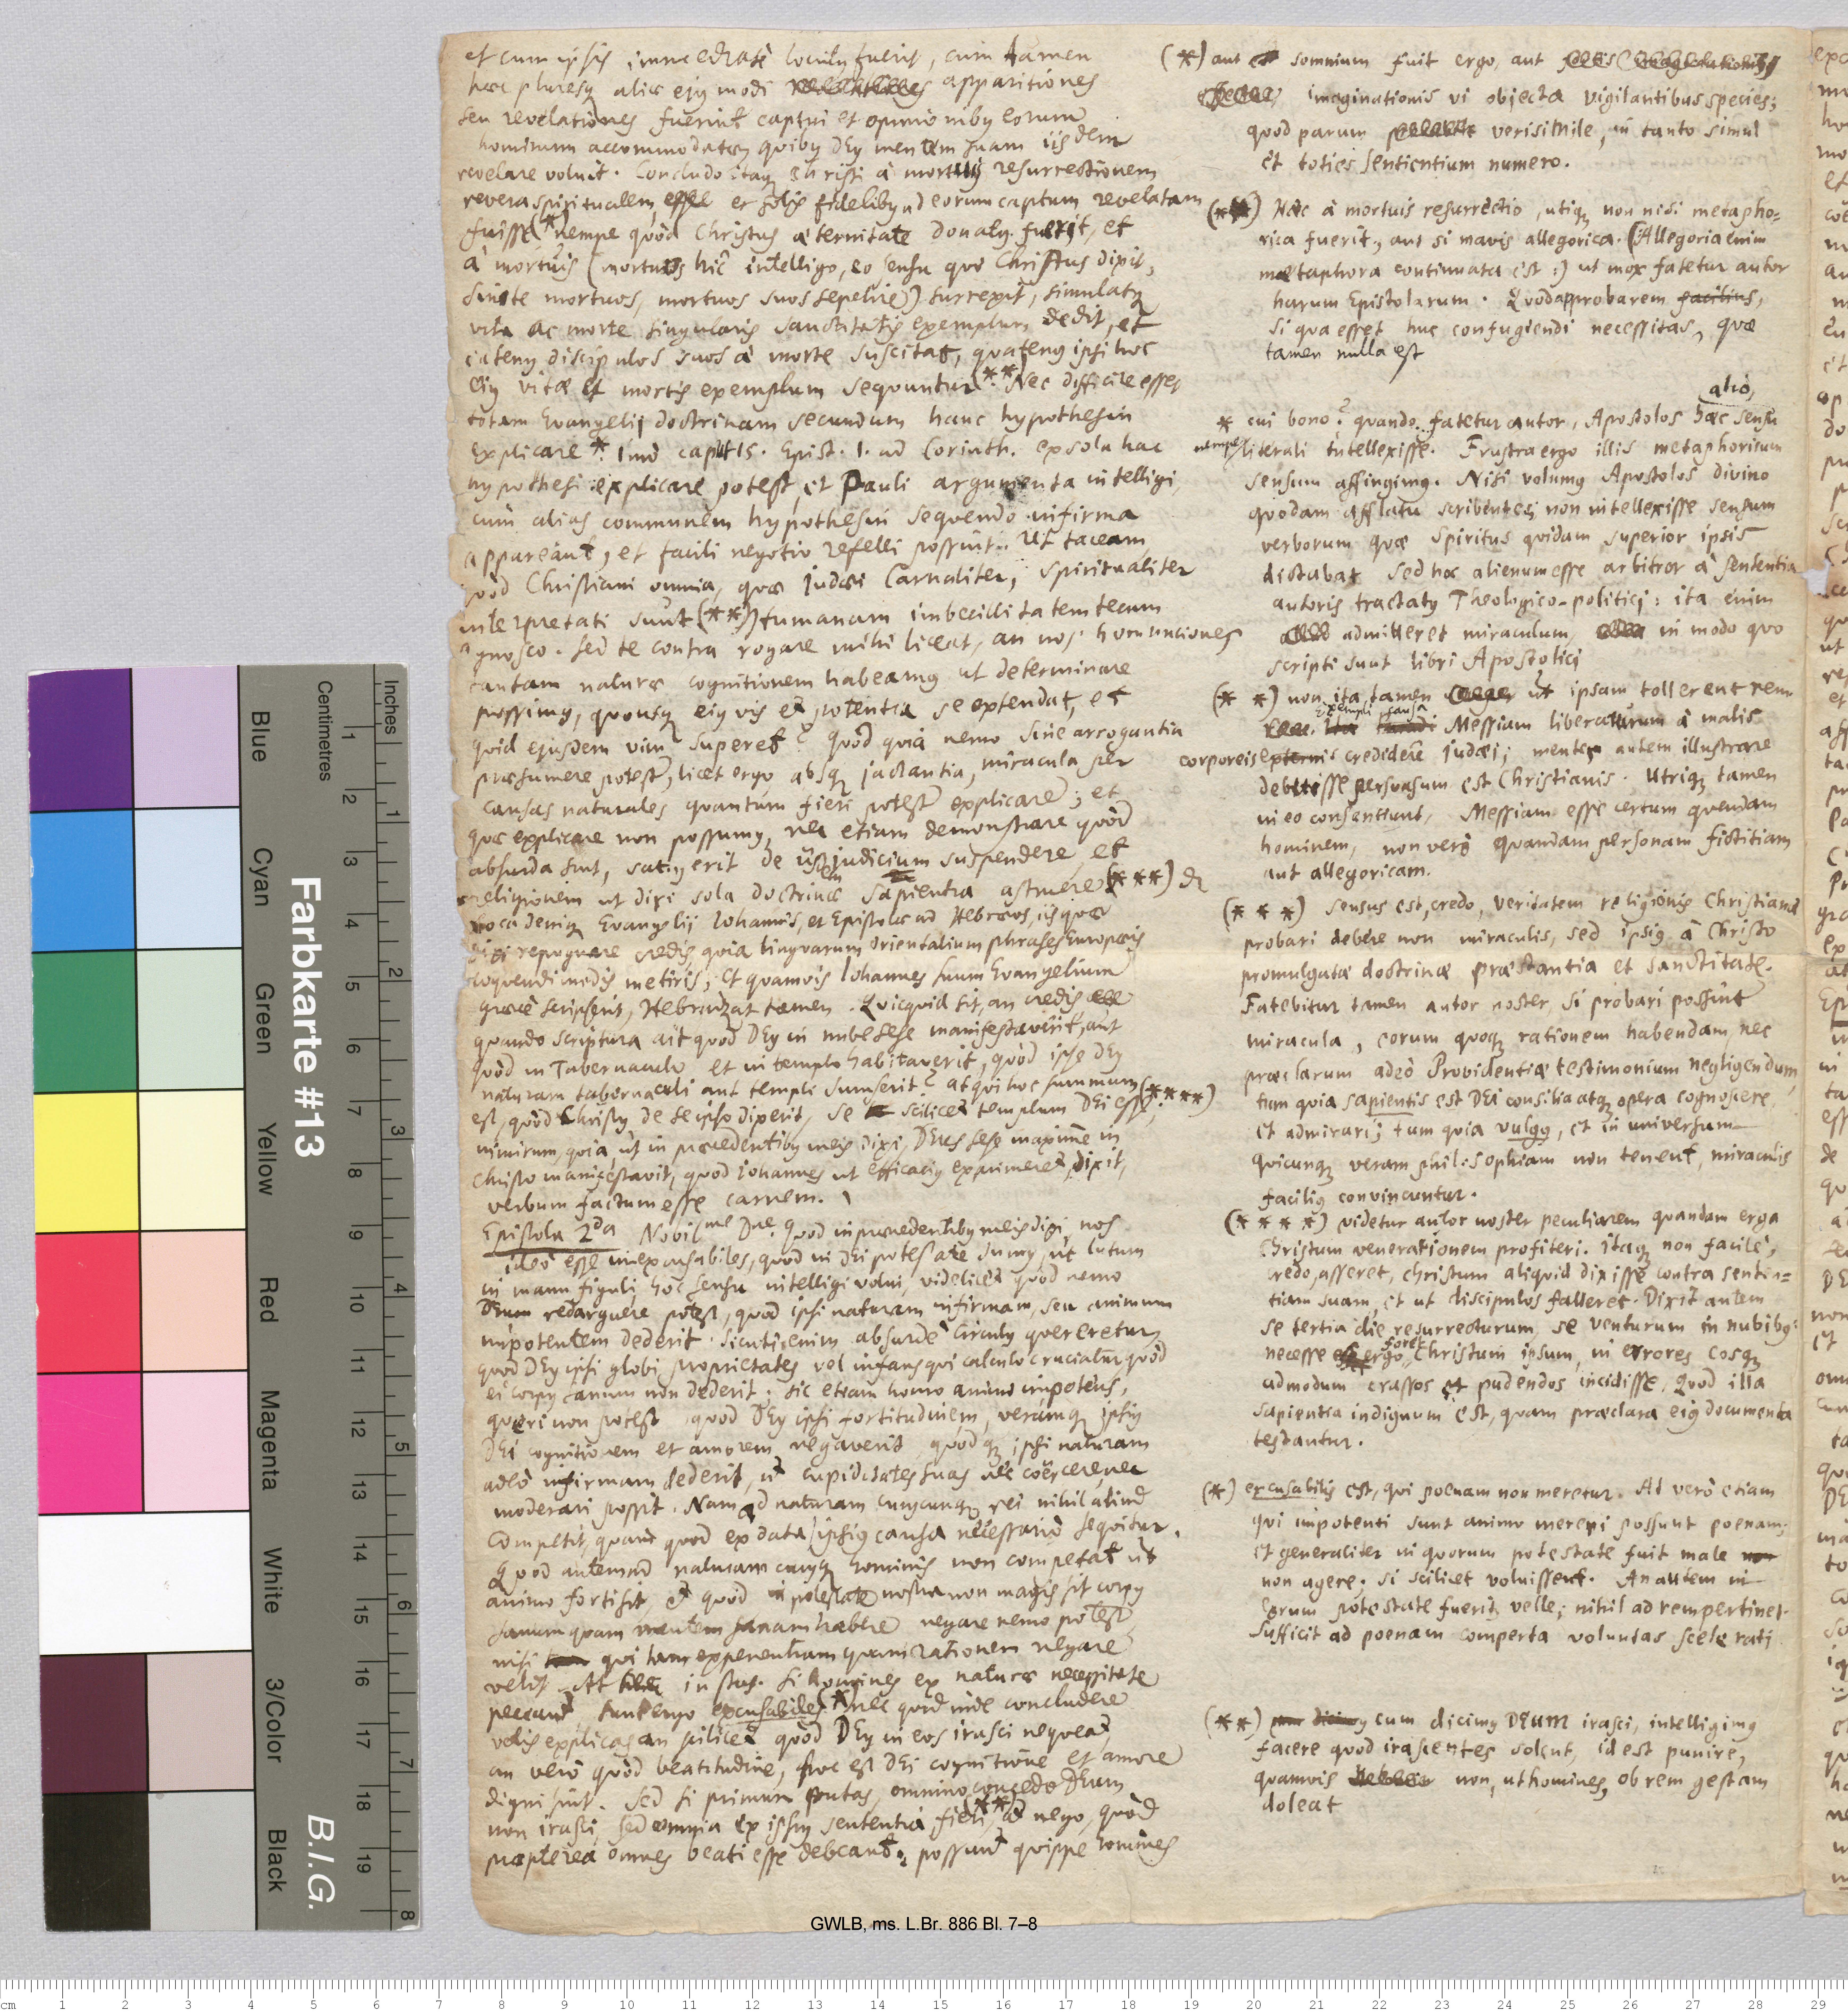 et cum ipsis immediate locutus fuerit, cum tamen
hæ pluresq aliæ ejusmodi apparitiones
seu revelationes fuerint captui et opinionibus eorum
hominum accommodatæ, quibus Deus mentem suam iisdem
revelare voluit. Concludo itaq Christi à mortuis resurrectionem
revera spiritualem et solis fidelibus ad eorum captum revelatam
fuisse (*) nempe quòd Christus æternitate donatus fuerit, et
à mortuis (mortuos hîc intelligo, eo sensu quo Christus dixit,
sinite mortuos, mortuos suos sepelire) surrexit, simulatq
vita ac morte singularis sanctitatis exemplum dedit, et
eatenus discipulos suos à morte suscitat, quatenus ipsi hoc
ejus vitæ et mortis exemplum sequuntur (**). Nec difficile esset
totam Evangelij doctrinam secundum hanc hypothesin
explicare *. Imò caput 15. Epist. 1. ad Corinth. ex sola hac
hypothesi explicare potest, et Pauli argumenta intelligi,
cum alias communem hypothesin sequendo infirma
appareant, et facili negotio refelli possint. Ut taceam
quòd Christiani omnia, quæ Judæi Carnaliter, spiritualiter
interpretati sunt (**) Humanam imbecillitatem tecum
agnosco. Sed te contra rogare mihi liceat, an nos homunciones
tantam naturæ cognitionem habeamus ut determinare
possimus, quousq ejus vis et potentia se extendat, et
quid ejusdem vim superet? Quod quia nemo sine arrogantia
præsumere potest, licet ergo absq jactantia, miracula per
causas naturales quantum fieri potest explicare; et
quæ explicare non possumus, nec etiam demonstrare quòd
absurda sint, satius erit de iis judicium suspendere, et
religionem ut dixi sola doctrinæ sapientia astruere (***)
loca deniq Evangelij Iohannis, et Epistolæ ad Hebræos, iis quæ
dixi repugnare credis quia linguarum orientalium phrases Europæis
loquendi modis metiris; Et quamvis Iohannes suum Evangelium
græcè scripserit, Hebraizat tamen. Quicquid sit, an credis
quando scriptura ait quod Deus in nube sese manifestaverit, aut
quòd in Tabernaculo et in templo habitaverit, quòd ipse Deus
naturam tabernaculi aut templi sumserit? atqui hoc summum (****)
est, quòd Christus de se ipso dixerit, se scilicet templum Dei esse,
nimirum, quia ut in præcedentibus meis dixi, Deus sese maxime in
Christo manifestavit, quod Iohannes ut efficacius exprimeret, dixit,
verbum factum esse carnem.
Epistola 2da Nobilme Dne. Quod in præcedentibus meis dixi, nos
ideò esse inexcusabiles, quod in Dei potestate sumus, ut lutum
in manu figuli, hoc sensu intelligi volui, videlicet quòd nemo
Deum redarguere potest, quod ipsi naturam infirmam, seu animum
impotentem dederit. Sicuti enim absurdè Circulus quereretur,
quòd Deus ipsi globi proprietates vel infans qui calculo cruciatur quòd
ei corpus sanum non dederit; sic etiam homo animo impotens,
queri non potest quòd Deus ipsi fortitudinem, veramq ipsius
Dei cognitionem et amorem negaverit, quodq ipsi naturam
adeò infirmam dederit, ut cupiditates suas nec coërcere, nec
moderari possit. Nam ad naturam cujuscunq rei nihil aliud
competit, quam quod ex data ipsius causa necessariò sequitur.
Quod autem ad naturam cujusq hominis non competat ut
animo forti sit, et quòd in potestate nostra non magis sit corpus
sanum quam mentem sanam habere negare nemo potest,
nisi qui tam experientiam quam rationem negare
velit. At instas. Si homines ex naturæ necessitate
peccant, sunt ergo excusabiles (*) nec quod inde concludere
velis explicas, an scilicet quòd Deus in eos irasci nequeat,
an verò quòd beatitudine, hoc est Dei cognitione et amore
digni sint. Sed si primum putas, omnino concedo Deum
non irasci, sed omnia ex ipsius sententia fieri, (**) at nego, quòd
propterea omnes beati esse debeant; possunt quippe homines
(*) aut somnium fuit ergo, aut
imaginationis vi objecta vigilantibus species;
quod parum verisimile, in tanto simul
et toties sentientium numero.
(**) Hæc à mortuis resurrectio, utiq non nisi metapho-
rica fuerit, aut si mavis allegorica. (Allegoria enim
metaphora continuata est:) ut mox fatetur autor
harum Epistolarum. Quod approbarem facilius,
si qua esset huc confugiendi necessitas, quæ
tamen nulla est
alio,
* cui bono? quando fatetur autor, Apostolos hæc sensu
nempe literali intellexisse. Frustra ergo illis metaphoricum
sensum affingimus. Nisi volumus Apostolos divino
quodam afflatu scribentes; non intellexisse sensum
verborum quæ Spiritus quidam superior ipsis
dictabat sed hoc alienum esse arbitror à sententia
autoris tractatus Theologico-politici: ita enim
admitteret miraculum, in modo quo
scripti sunt libri Apostolici
(**) non ita tamen ut ipsam tollerent rem
exempli causa Messiam liberaturum à malis
corporeis externis credidere Judæi; mentes autem illustrare
debuisse persuasum est Christianis. Utriq tamen
in eo consentiunt, Messiam esse certum quendam
hominem, non verò quandam personam fictitiam
aut allegoricam.
(***) sensus est, credo, veritatem religionis Christianæ
probari debere non miraculis, sed ipsius à Christo
promulgatæ doctrinæ præstantia et sanctitate.
Fatebitur tamen autor noster, si probari possint
miracula, eorum quoq rationem habendam, nec
præclarum adeò Providentiæ testimonium negligendum,
tum quia sapientis est Dei consilia atq opera cognoscere,
et admirari; tum quia vulgus, et in universum
quicunq veram philosophiam non tenent, miraculis
facilius convincuntur.
(****) videtur autor noster peculiarem quandam erga
Christum venerationem profiteri. Itaq non facilè,
credo, asseret, Christum aliquid dixisse contra senten-
tiam suam, et ut discipulos falleret. Dixit autem
se tertia die resurrecturum, se venturum in nubibus:
necesse ergo foret Christum ipsum, in errores eosq
admodum crassos et pudendos incidisse. Quod illa
sapientia indignum est, quam præclara ejus documenta
testantur.
(*) excusabilis est, qui poenam non meretur. At verò etiam
qui impotenti sunt animo mereri possunt poenam;
et generaliter in quorum potestate fuit male
non agere, si scilicet voluissent. An autem in
eorum potestate fuerit velle; nihil ad rem pertinet.
Sufficit ad poenam comperta voluntas scelerati
(**) cum dicimus Deum irasci, intelligimus
facere quod irascentes solent, id est punire,
quamvis non, ut homines, ob rem gestam
doleat
Inches
Centimetres
1 2 3 4 5 6 7 8 9 10 11 12 13 14 15 16 17 18 19
1 2 3 4 5 6 7 8
Blue
Cyan
Green
Yellow
Red
Magenta
White
3/Color
Black
Farbkarte #13
B.I.G.
GWLB, ms. L.Br. 886 Bl. 7–8
cm 1 2 3 4 5 6 7 8 9 10 11 12 13 14 15 16 17 18 19 20 21 22 23 24 25 26 27 28 29